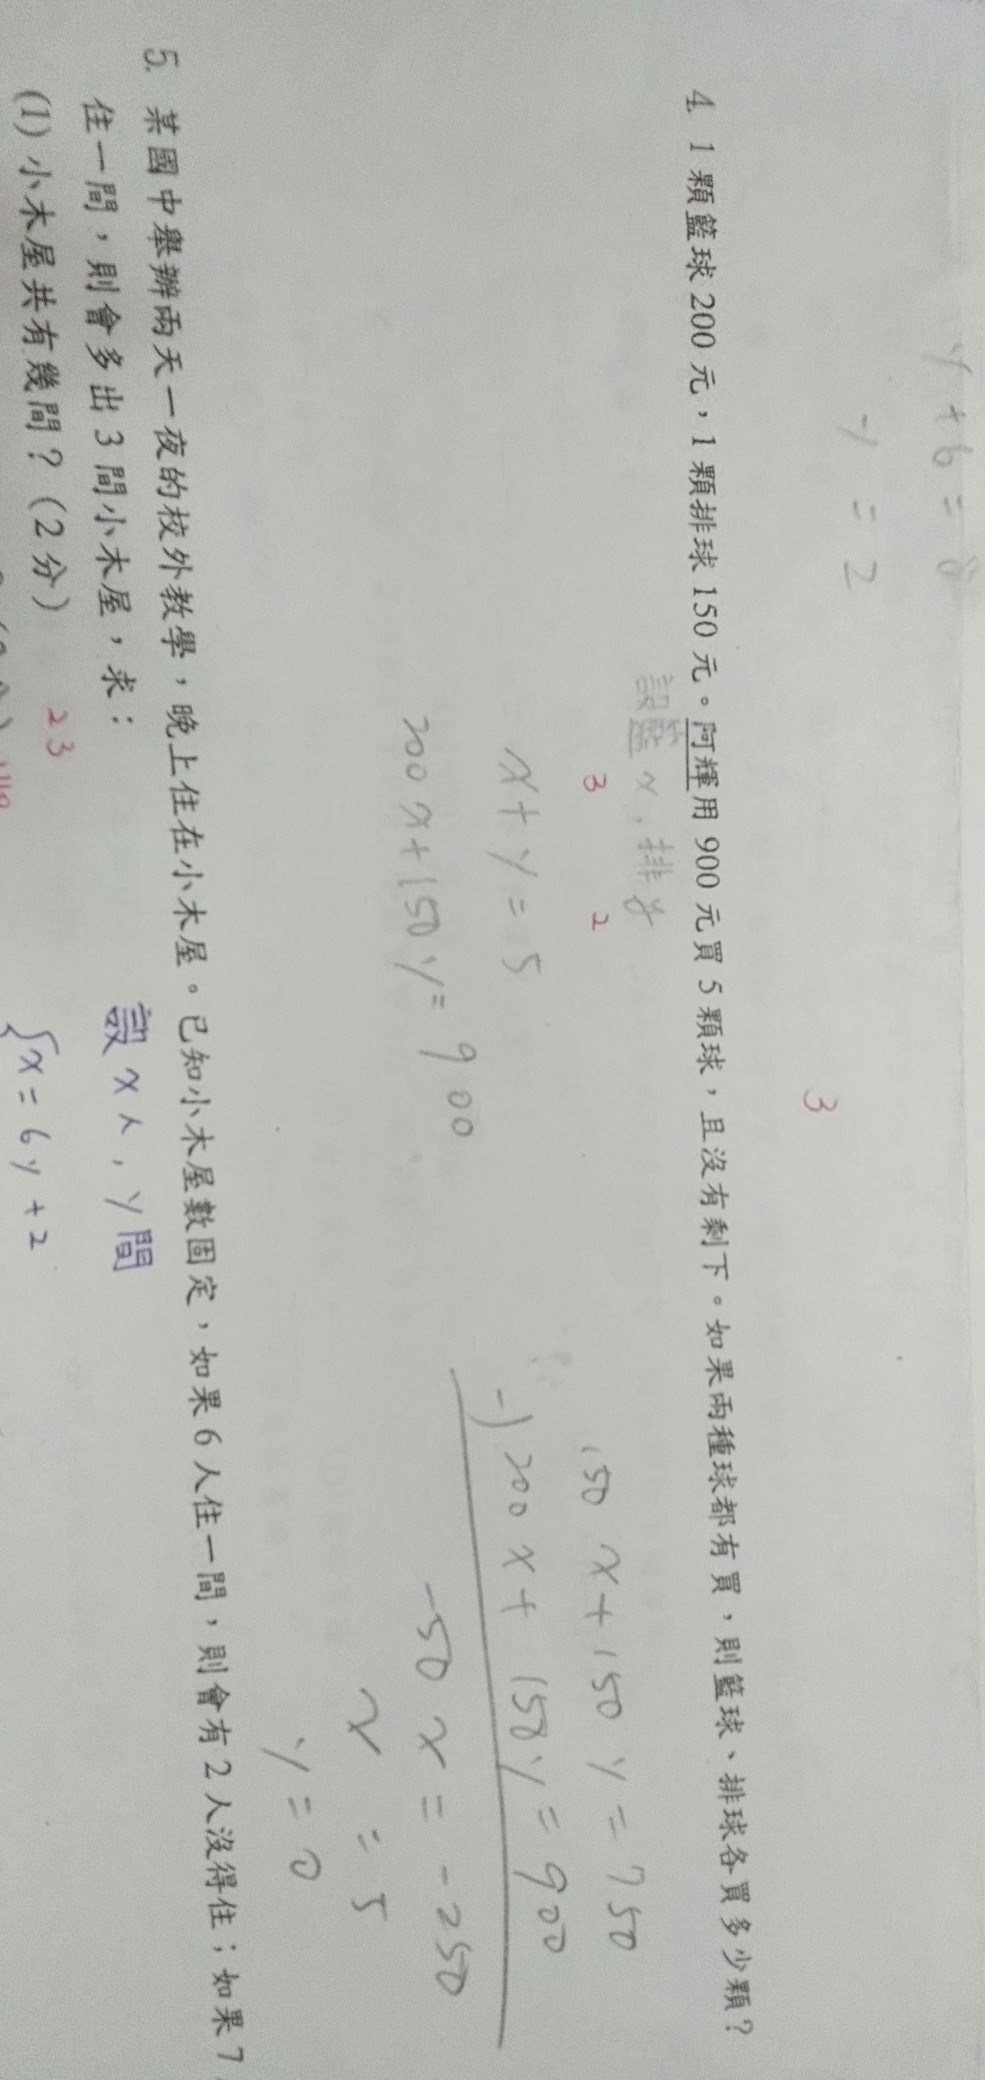 y+6=8
y=2
3
4. 1顆籃球200元，1顆排球150元。阿輝用900元買5顆球，且沒有剩下。如果兩種球都有買，則籃球、排球各買多少顆？
設籃x，排y
3 2
x+y=5
200x+150y=900
150x+150y=750
-)200x+150y=900
-50x=-250
x=5
y=0
5. 某國中舉辦兩天一夜的校外教學，晚上住在小木屋。已知小木屋數固定，如果6人住一間，則會有2人沒得住；如果7
住一間，則會多出3間小木屋，求：
設x人，y間
(1) 小木屋共有幾間？(2分) 23
{x=6y+2